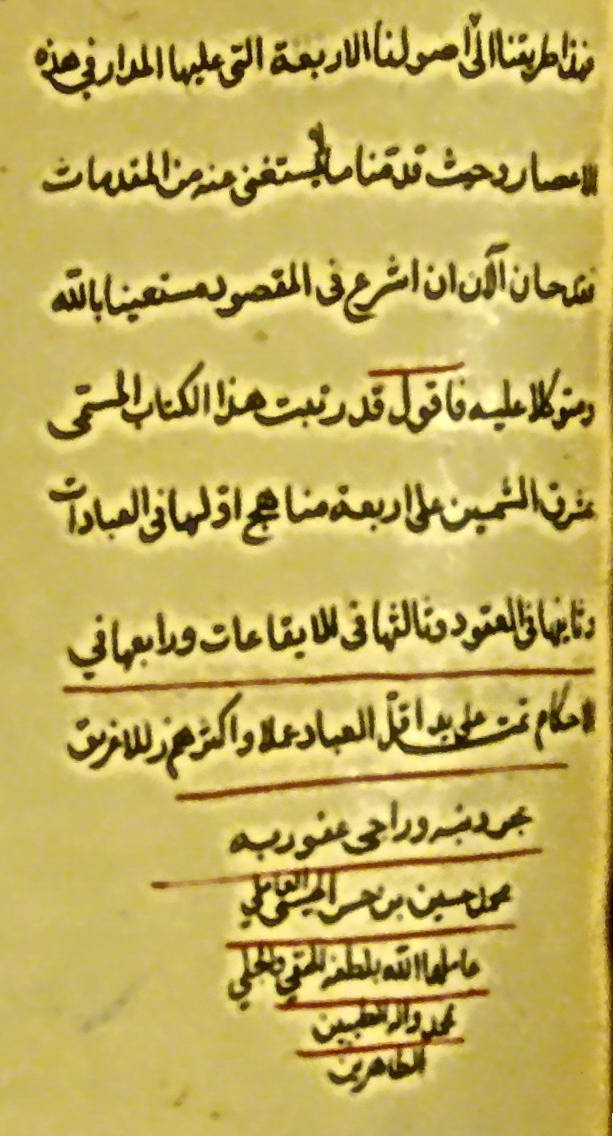 فهذا طريقتنا الى اصولنا الاربعة التي عليها المدار في هذه
الاعصار وحيث قدمنا ما لا يستغنى عنه من المقدمات
فقد حان الآن ان اشرع في المقصود مستعينا بالله
ومتوكلا عليه فاقول قد رتبت هذا الكتاب المسمى
بمشرق الشمسين على اربعة مناهج اولها في العبادات
وثانيها في العقود وثالثها في الايقاعات ورابعها في
الاحكام تمت على يد اقل العباد عملا واكثرهم زللا غريق
بحر ذنبه وراجى عفو ربه
محمد حسين بن حسن الميسي العاملي
عاملهما الله بلطفه الخفي والجلي
بمحمد واله الطيبين
الطاهرين